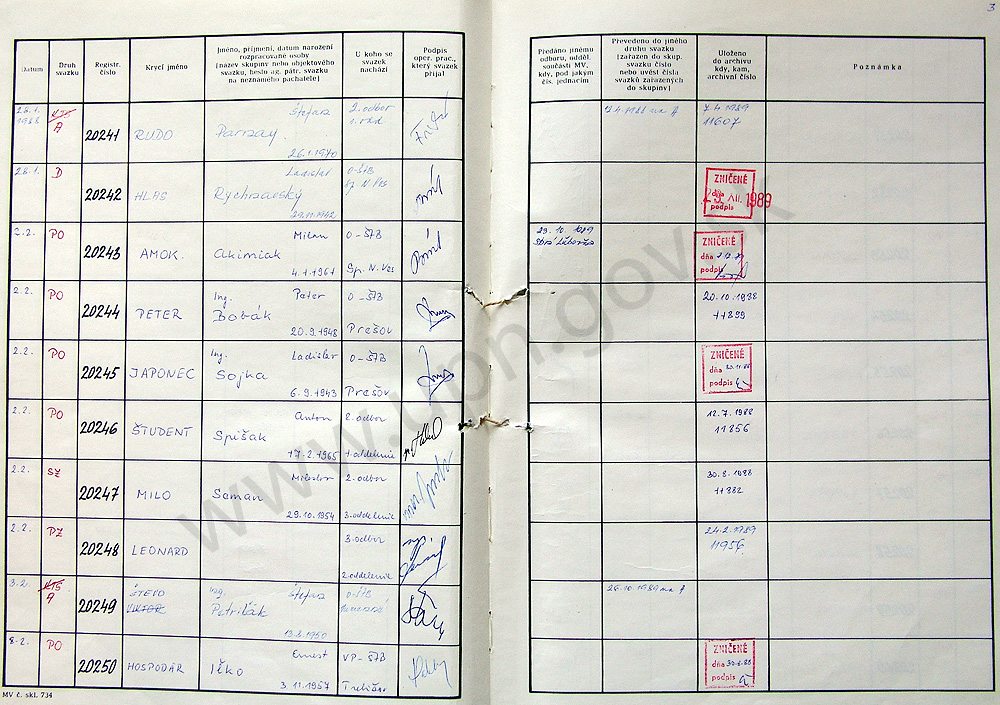 3
Datum
Druh
svazku
Registr.
číslo
Krycí jméno
Jméno, příjmení, datum narození
rozpracované osoby
[název skupiny nebo objektového
svazku, heslo ag. pátr. svazku
na neznámého pachatele]
U koho se
svazek
nachází
Podpis
oper. prac.,
který svazek
přijal
Předáno jinému
odboru, odděl.
součásti MV,
kdy, pod jakým
čís. jednacím
Převedeno do jiného
druhu svazku
[zařazen do skup.
svazku číslo
nebo uvést čísla
svazků zařazených
do skupiny]
Uloženo
do archivu
kdy, kam,
archivní číslo
Poznámka
1988
A
20241
RUDO
Štefan
Parzay
26.1.1970
2. odbor
7.4.1989
11607
D
20242
HLAS
Ladislav
Rychnavský
29.11.1942
O-ŠTB
Sp. N. Ves
ZNIČENÉ
dňa
XII. 1989
podpis
2.2.
PO
20243
AMOK.
Milan
Akimiak
4.1.1961
O-ŠTB
Sp. N. Ves
23.10.1989
ZNIČENÉ
dňa
podpis
2.2.
PO
20244
PETER
Ing.
Peter
Bobák
20.9.1948
O-ŠTB
Prešov
20.10.1988
11899
2.2.
PO
20245
JAPONEC
Ing.
Ladislav
Sojka
6.9.1943
O-ŠTB
Prešov
ZNIČENÉ
dňa
podpis
2.2.
PO
20246
ŠTUDENT
Anton
Spišak
17.2.1965
2. odbor
1. oddelenie
12.7.1988
11856
2.2.
SZ
20247
MILO
Miloslav
Seman
29.10.1954
2. odbor
3. oddelenie
30.8.1988
11882
2.2.
PZ
20248
LEONARD
3. odbor
2. oddelenie
24.2.1989
11956
3.2.
A
20249
ŠTEVO
VIKTOR
Ing.
Štefan
Petrilák
13.8.1950
O-ŠTB
26.10.1989 na A
8.2.
PO
20250
HOSPODÁR
Ernest
Ilko
3.11.1957
VP-ŠTB
Trebišov
ZNIČENÉ
dňa
podpis
MV č. skl. 734
www.upn.gov.sk